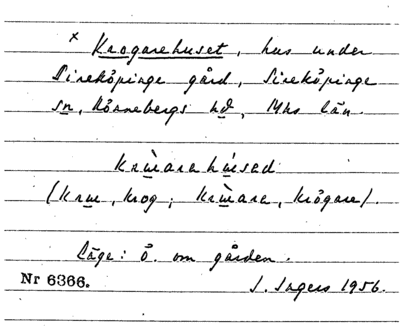 × Krogarehuset, hus under
Sireköpinge gård, Sireköpinge
sn, Rönnebergs hd, Mhs län.
krɯ̀arahɯ́sad
(krɯ, krog; krɯ̀ara, krögare).
Läge: Ö. om gården.
Nr 6366.
J. Ingers 1956.